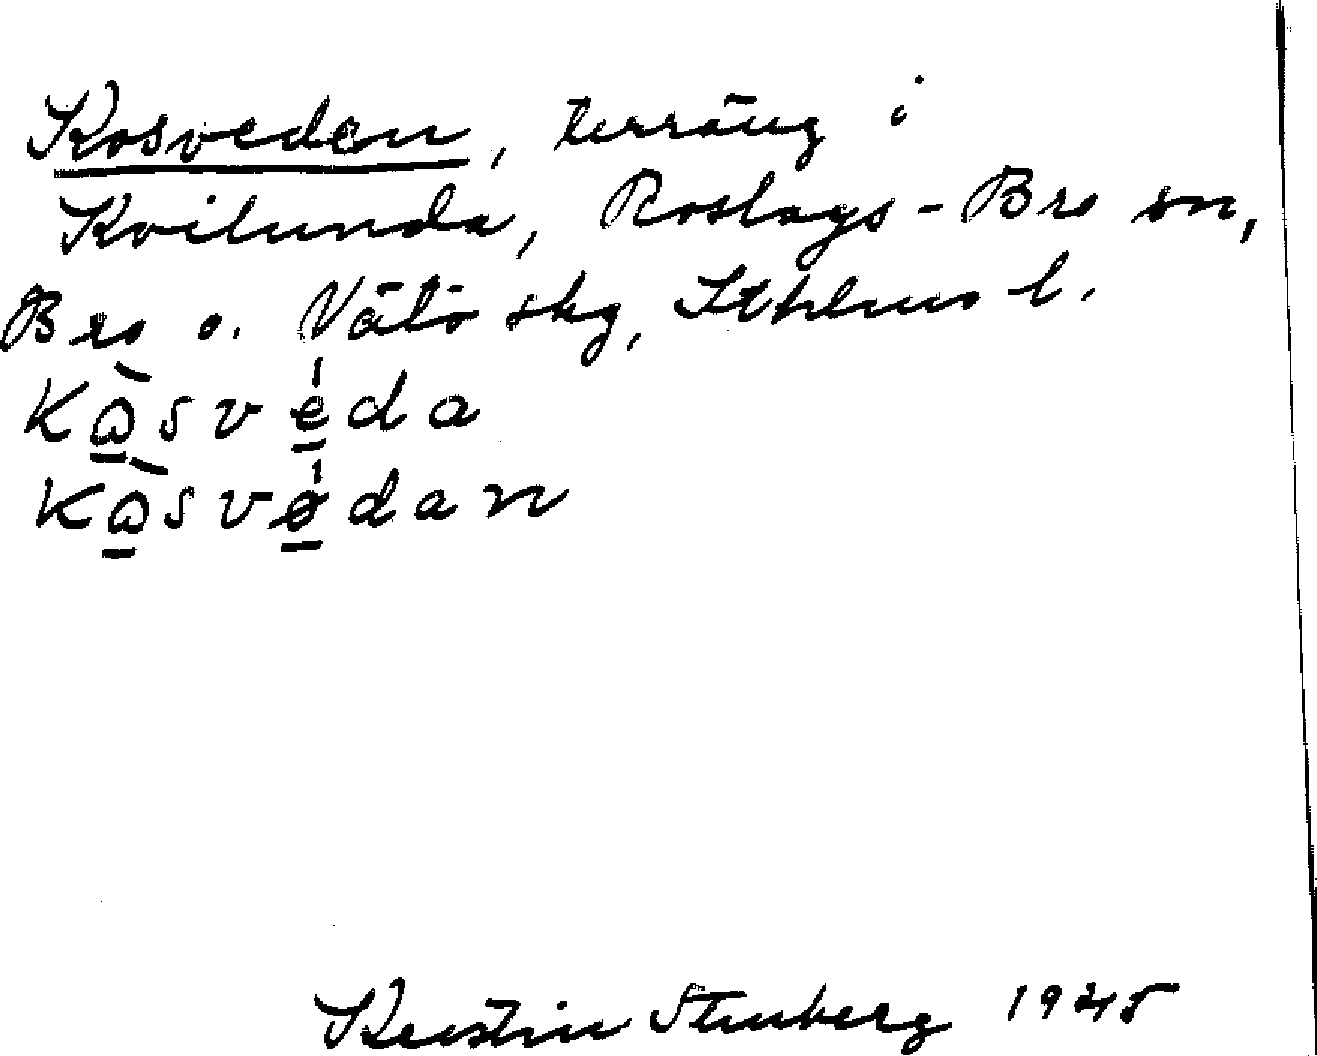 Kosveden, terräng i
Kvilunda, Roslags-Bro sn,
Bro o. Vätö skg, Sthlms l.
kòsvéda
kòsvédan
Kerstin Stenberg 1945